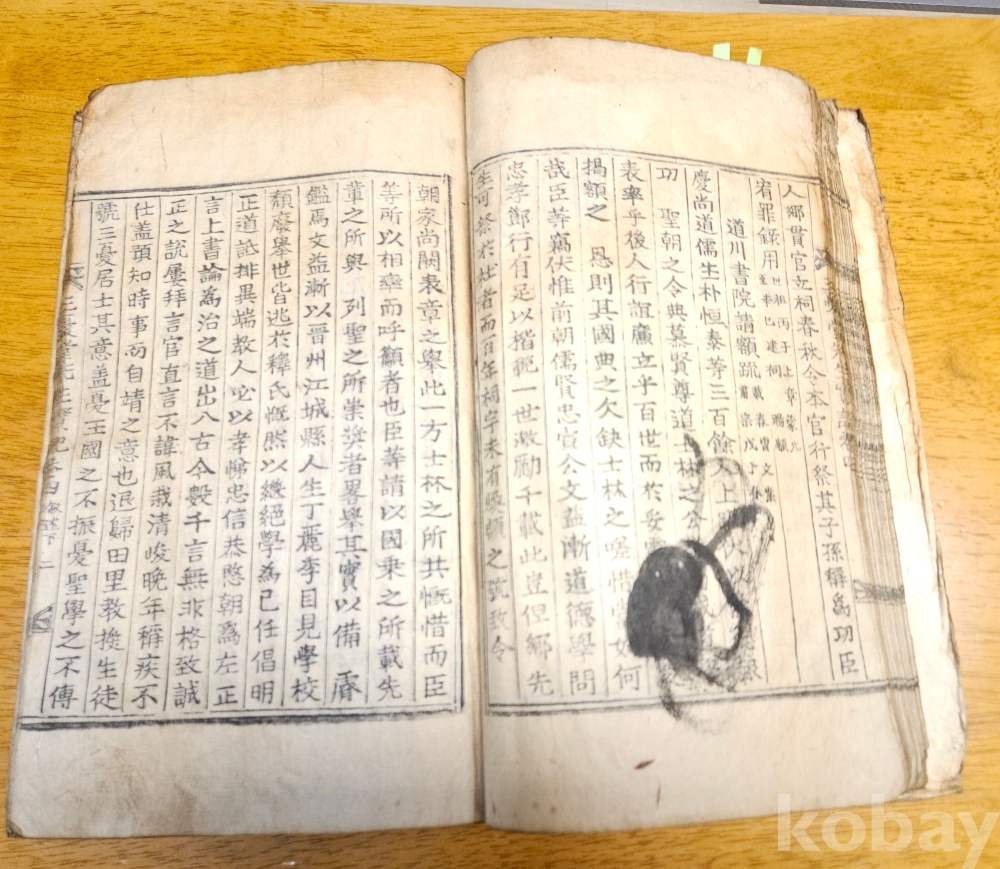 人鄉貫官立祠春秋令本官行祭其子孫稱爲功臣
宥罪錄用
世祖丙子上章蒙允
至辛巳建祠賜額
道川書院請額疏
載春曹文案
肅宗戊子春
慶尚道儒生朴恒泰等三百餘人上
功 聖朝之令典慕賢尊道士林之公
表率乎後人行誼廉立乎百世而於妥 如何
揭額之 恩則其國典之欠缺士林之嗟惜
哉臣等竊伏惟前朝儒賢忠宣公文益漸道德學問
忠孝鄭行有足以楷範一世激勵千載此豈但鄉先
生可祭於社者而百年祠宇未有煥額之號致令
朝家尚闕表章之舉此一方士林之所共慨惜而臣
等所以相率而呼籲者也臣等請以國乘之所載先
輩之所與 列聖之所崇奬者畧舉其實以備 睿
鑑焉文益漸以晋州江城縣人生丁麗季目見學校
頹廢舉世皆逃於釋氏慨然以繼絕學爲己任倡明
正道詆排異端教人必以孝悌忠信恭愍朝爲左正
言上書論爲治之道出入古今數千言無非格致誠
正之說屢拜言官直言不諱風裁清峻晚年稱疾不
仕盖預知時事而自靖之意也退歸田里教授生徒
號三憂居士其意盖憂王國之不振憂聖學之不傳
kobay